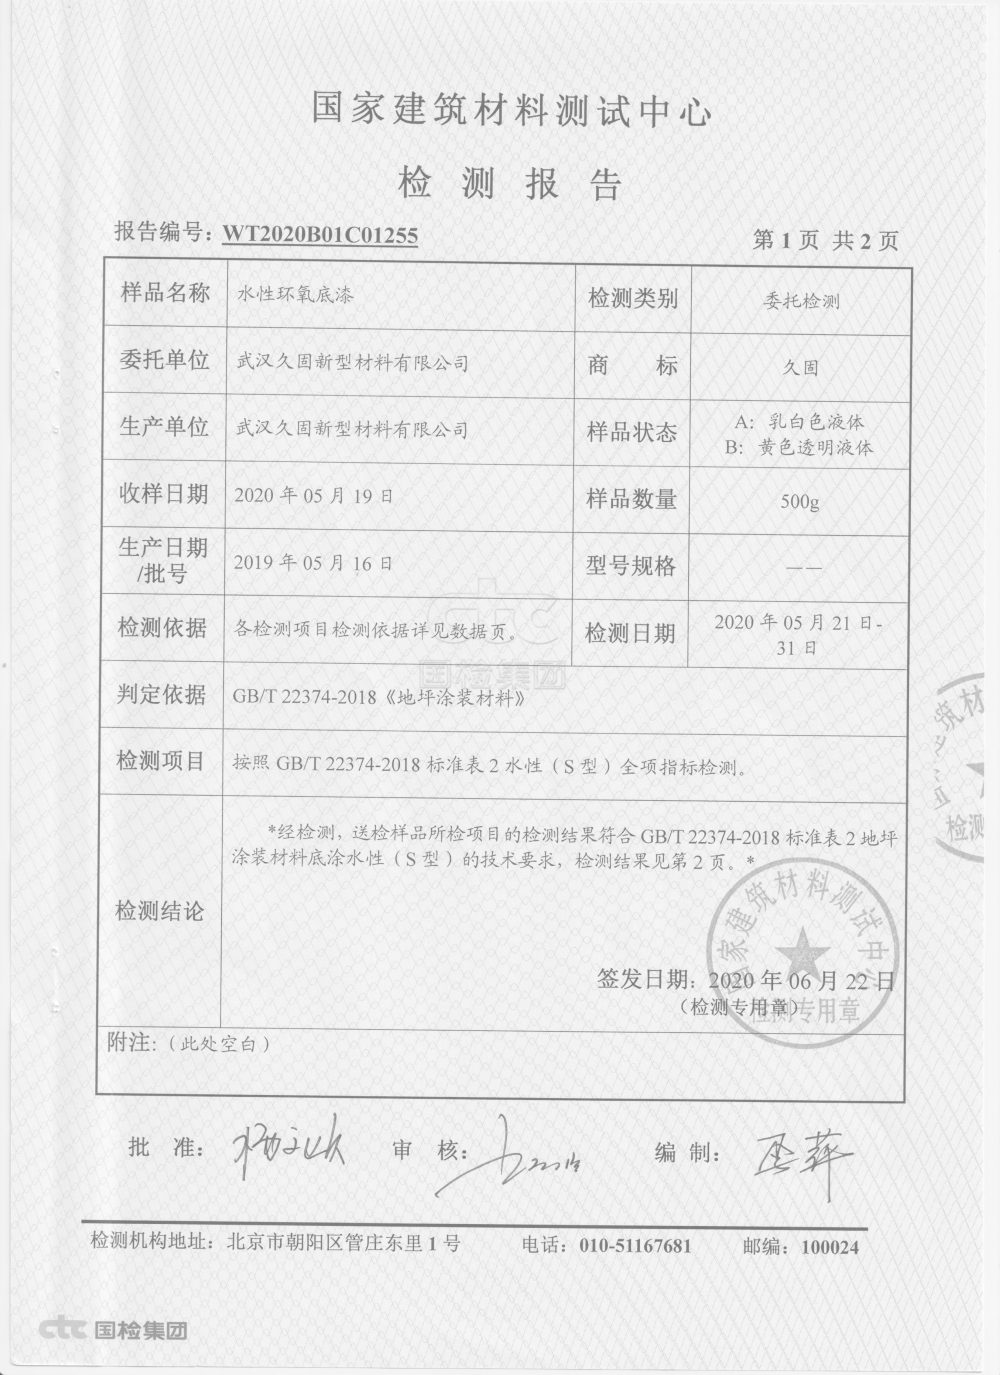 国家建筑材料测试中心
检 测 报 告
报告编号: WT2020B01C01255
第 1 页 共 2 页
样品名称 水性环氧底漆 检测类别 委托检测
委托单位 武汉久固新型材料有限公司 商 标 久固
生产单位 武汉久固新型材料有限公司 样品状态 A: 乳白色液体
B: 黄色透明液体
收样日期 2020 年 05 月 19 日 样品数量 500g
生产日期
/批号 2019 年 05 月 16 日 型号规格 ——
检测依据 各检测项目检测依据详见数据页。 检测日期 2020 年 05 月 21 日-
31 日
ctc
国检集团
判定依据 GB/T 22374-2018《地坪涂装材料》
检测项目 按照 GB/T 22374-2018 标准表 2 水性（S 型）全项指标检测。
检测结论 *经检测，送检样品所检项目的检测结果符合 GB/T 22374-2018 标准表 2 地坪
涂装材料底涂水性（S 型）的技术要求，检测结果见第 2 页。*
国家建筑材料测试中心
签发日期: 2020 年 06 月 22 日
（检测专用章）
检测专用章
筑材
检测
附注:（此处空白）
批 准: 审 核: 编 制:
检测机构地址: 北京市朝阳区管庄东里 1 号 电话: 010-51167681 邮编: 100024
ctc 国检集团